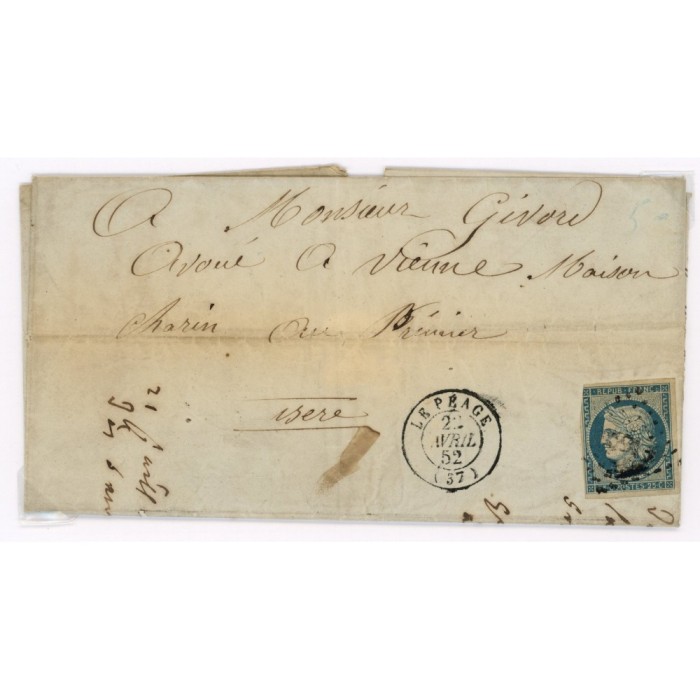 A Monsieur Givord
Avoué A Vienne Maison
Charin au Prémier
isere
LE PÉAGE
22
AVRIL
52
(37)
REPUB. FRANC.
POSTES 25 C
5